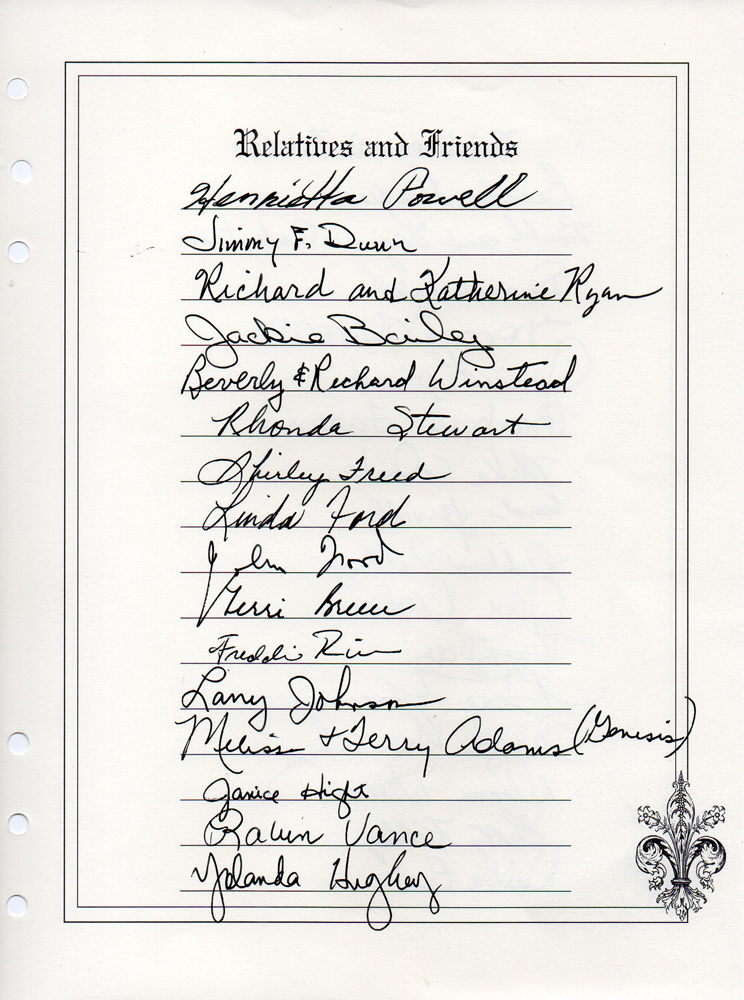 Relatives and Friends
Henrietta Powell
Jimmy F. Dunn
Richard and Katherine Ryan
Jackie Bailey
Beverly & Richard Winstead
Rhonda Stewart
Shirley Freed
Linda Ford
John
Terri
Freddie
Larry Johnson
Melissa + Terry Adams (Genesis)
Janice Hight
Vance
Yolanda Hughey